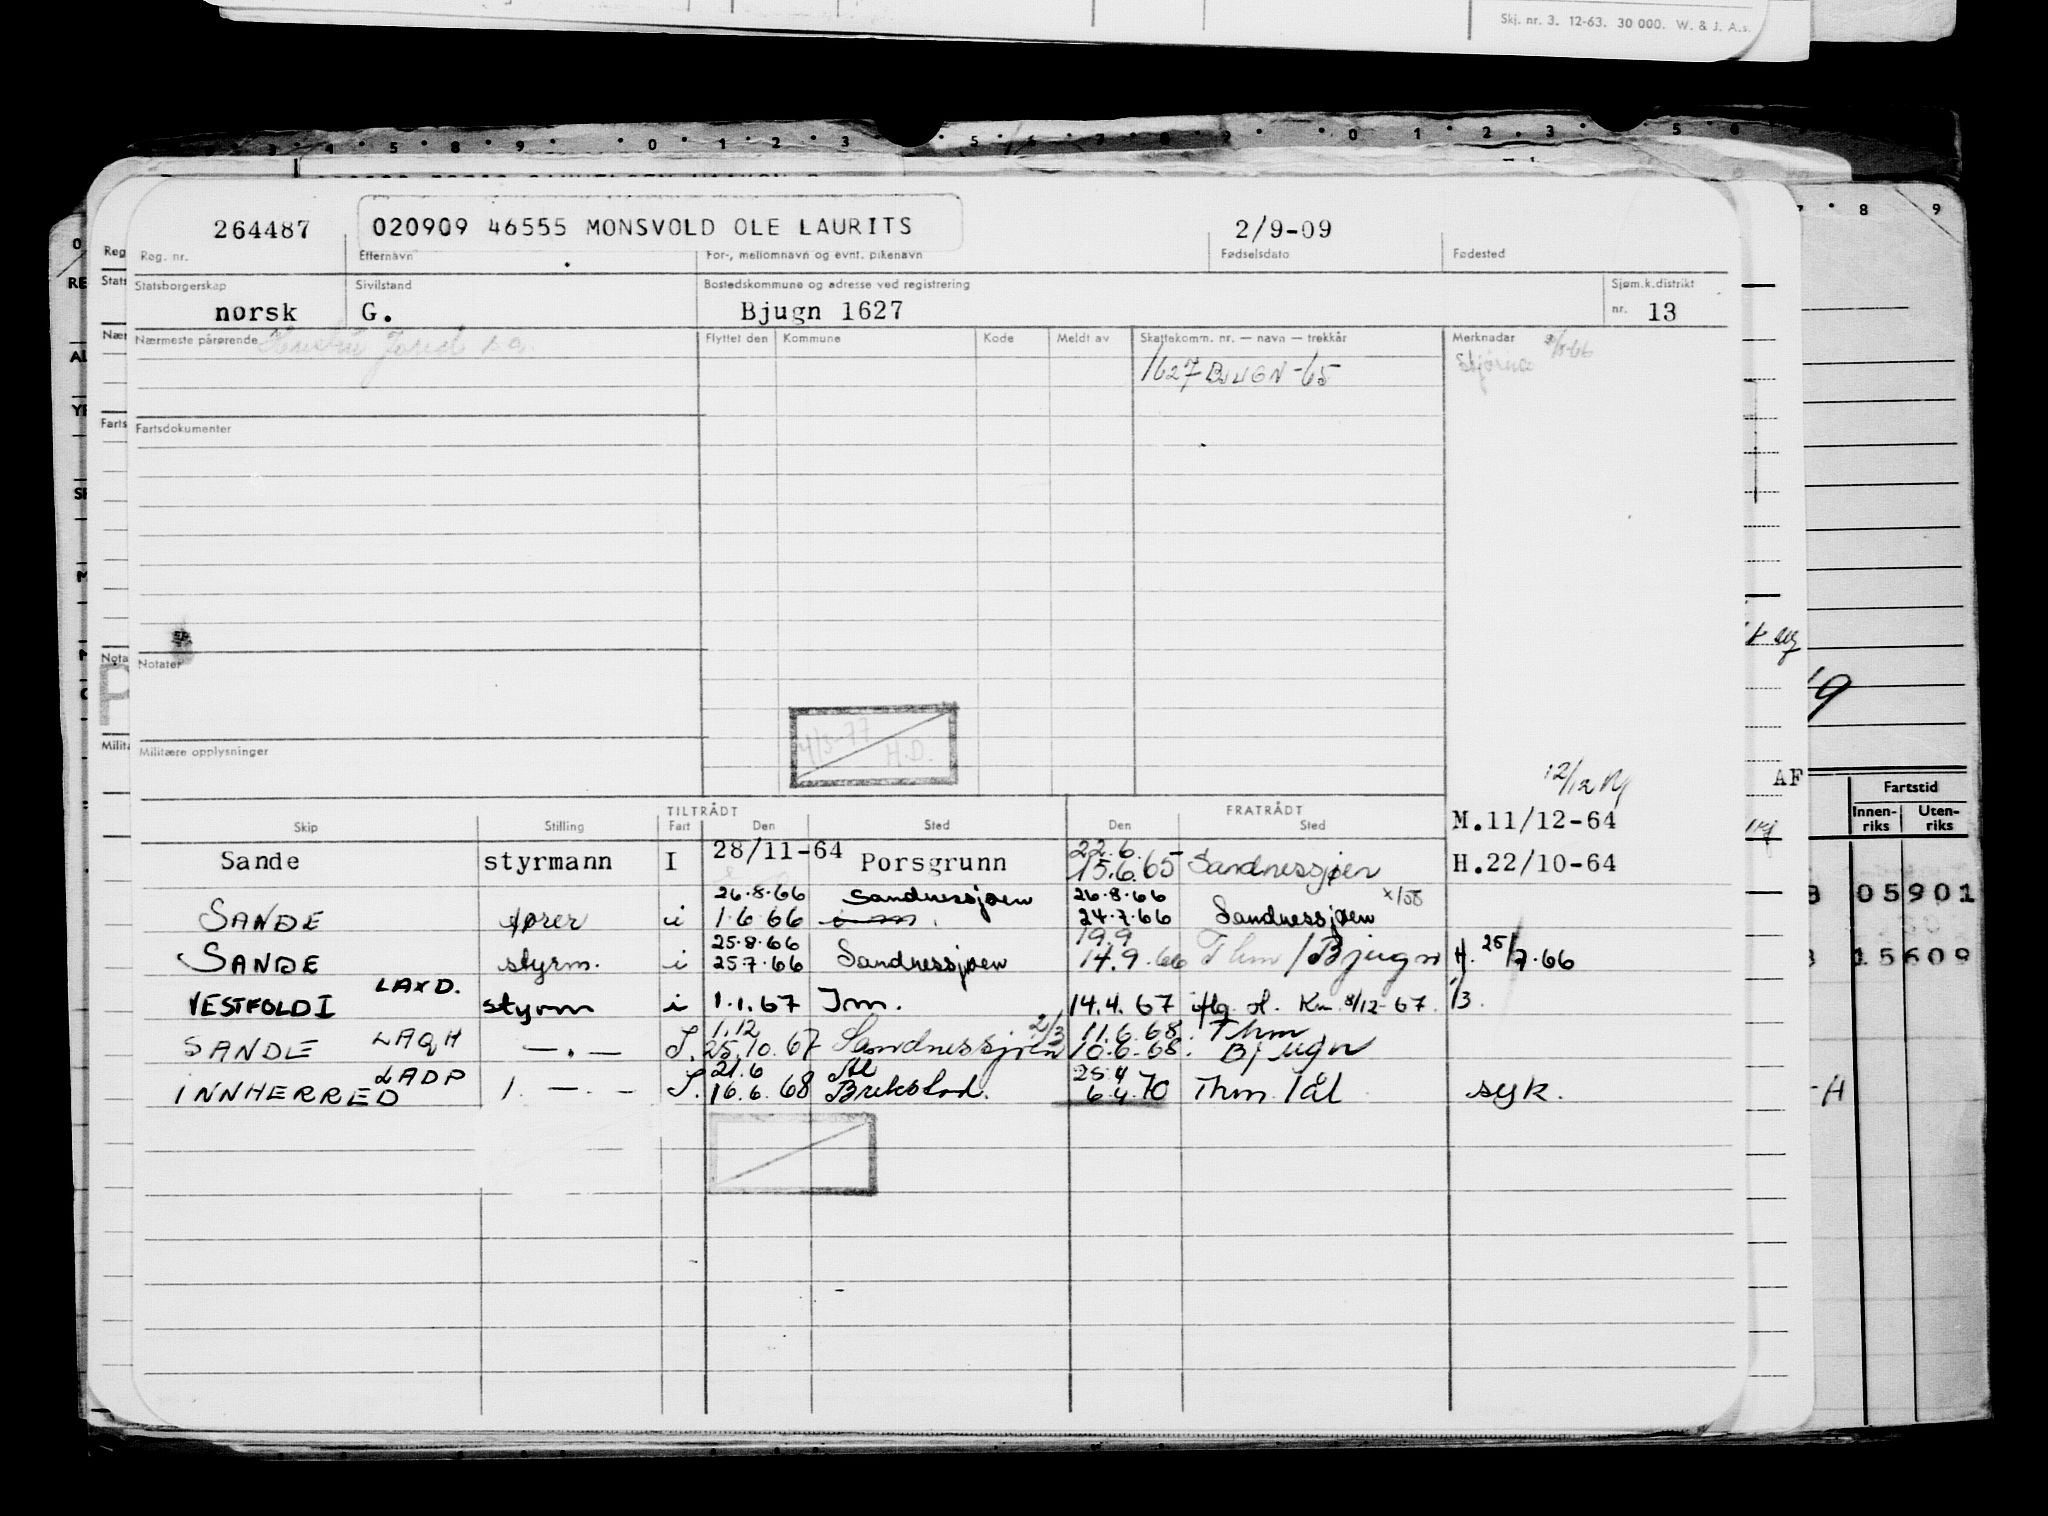 Skj. nr. 3. 12-63. 30 000. W. & J. A.s.
264487 020909 46555 MONSVOLD OLE LAURITS 2/9-09
Reg. nr. Efternavn For-, mellomnavn og evnt. pikenavn Fødselsdato Fødested
Statsborgerskap Sivilstand Bostedskommune og adresse ved registrering Sjøm.k.distrikt
norsk G. Bjugn 1627 nr. 13
Nærmeste pårørende Flyttet den Kommune Kode Meldt av Skattekomm. nr. — navn — trekkår Merknader
1627 BJUGN-65
Fartsdokumenter
Notater
4/3-77
H.D.
Militære opplysninger
12/12
TILTRÅDT FRATRÅDT
Skip Stilling Fart Den Sted Den Sted M.11/12-64
22.6.
Sande styrmann I 28/11-64 Porsgrunn 15.6.65 Sandnessjøen H.22/10-64
26.8.66 Sandnessjøen 26.8.66
SANDE fører i 1.6.66 24.7.66 Sandnessjøen
25.8.66 19.9
SANDE styrm. i 25.7.66 Sandnessjøen 14.9.66 Thm/Bjugn H. 25/7.66
LAXD.
VESTFOLD I styrm i 1.1.67 Jm. 14.4.67 iflg. H. Km 8/12-67. 1/3.
1.12 2/3 11.6.68. Thm
SANDE LAQH —.— S. 25.10.67 Sandnessjøen 10.6.68. Bjugn
LADP 21.6 25.4
INNHERRED 1. —.— S. 16.6.68 Brekstad. 6.4.70 Thm. Iål syk.
AF
Fartstid
Innen-riks Uten-riks
05901
15609